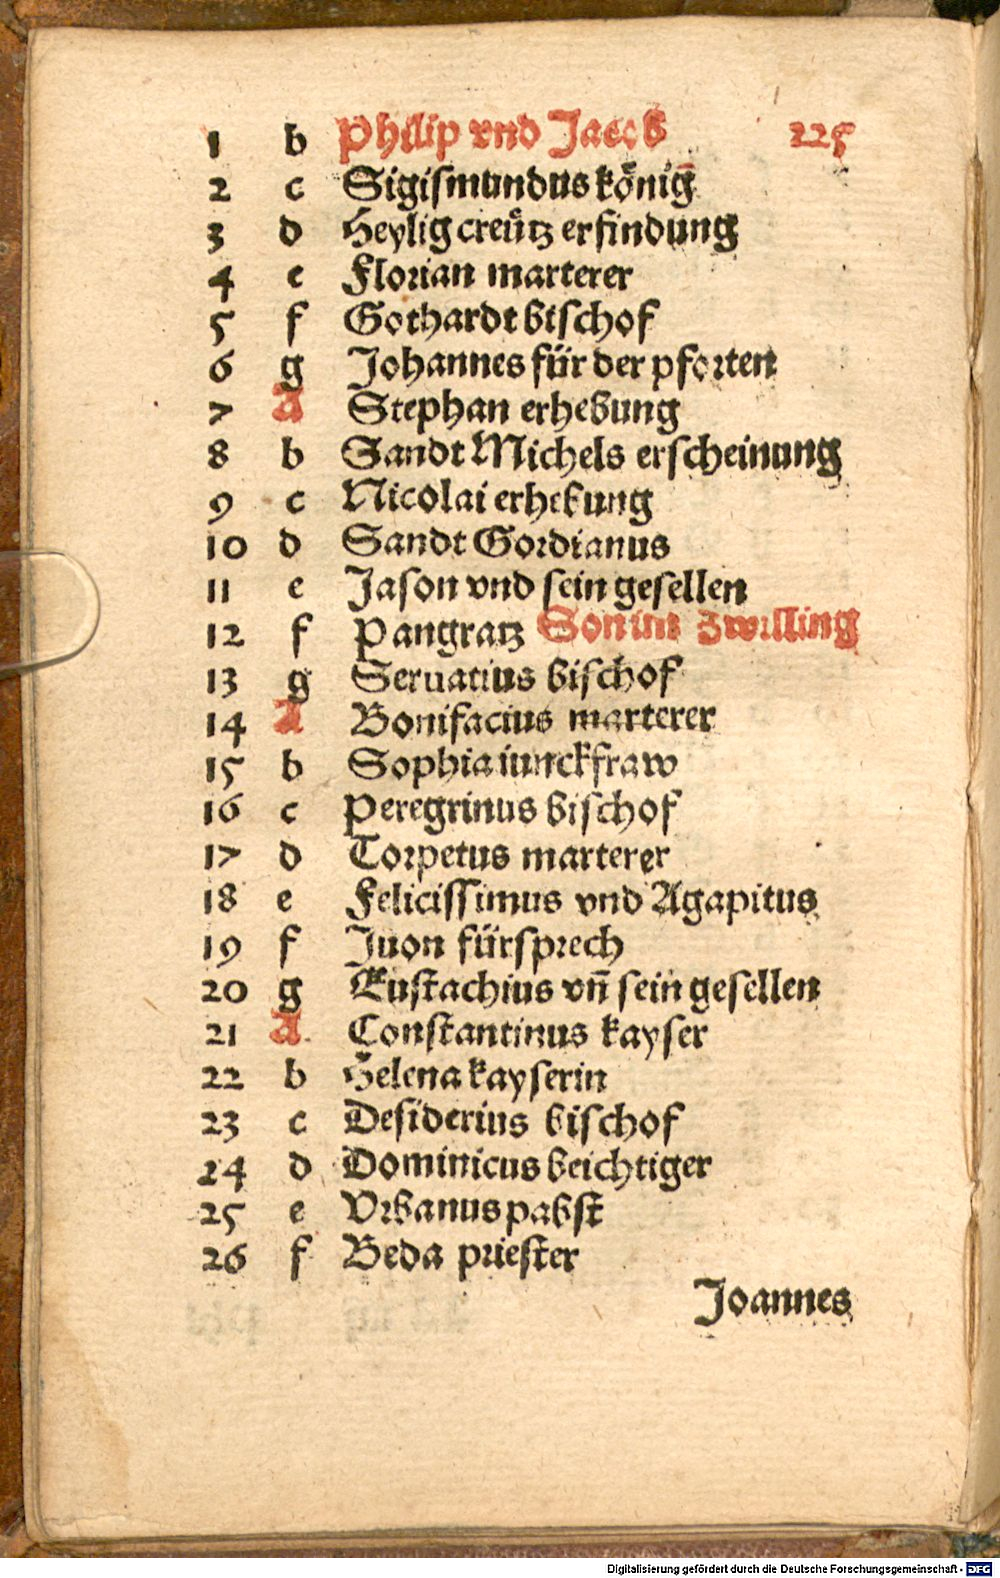 1 b Philip vnd Jacob 225
2 c Sigismundus köniḡ
3 d Heylig creütz erfindung
4 e Florian marterer
5 f Gothardt bischof
6 g Johannes für der pforten
7 A Stephan erhebung
8 b Sandt Michels erscheinung
9 c Nicolai erhebung
10 d Sandt Gordianus
11 e Jason vnd sein gesellen
12 f Pangratz Son im zwilling
13 g Seruatius bischof
14 A Bonifacius marterer
15 b Sophia iunckfraw
16 c Peregrinus bischof
17 d Torpetus marterer
18 e Felicissimus vnd Agapitus
19 f Juon fürsprech
20 g Eustachius vn̄ sein gesellen
21 A Constantinus kayser
22 b Helena kayserin
23 c Desiderius bischof
24 d Dominicus beichtiger
25 e Vrbanus pabst
26 f Beda priester
Joannes
Digitalisierung gefördert durch die Deutsche Forschungsgemeinschaft - DFG